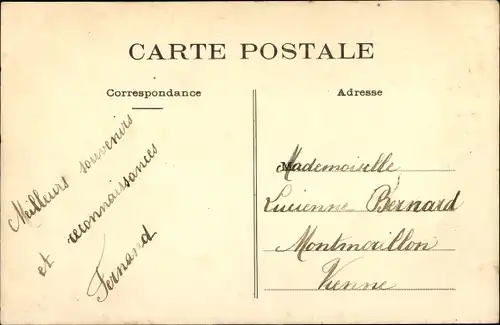 CARTE POSTALE
Correspondance
Adresse
Meilleurs souvenirs
et reconnaissances
Fernand
Mademoiselle
Lucienne Bernard
Montmorillon
Vienne